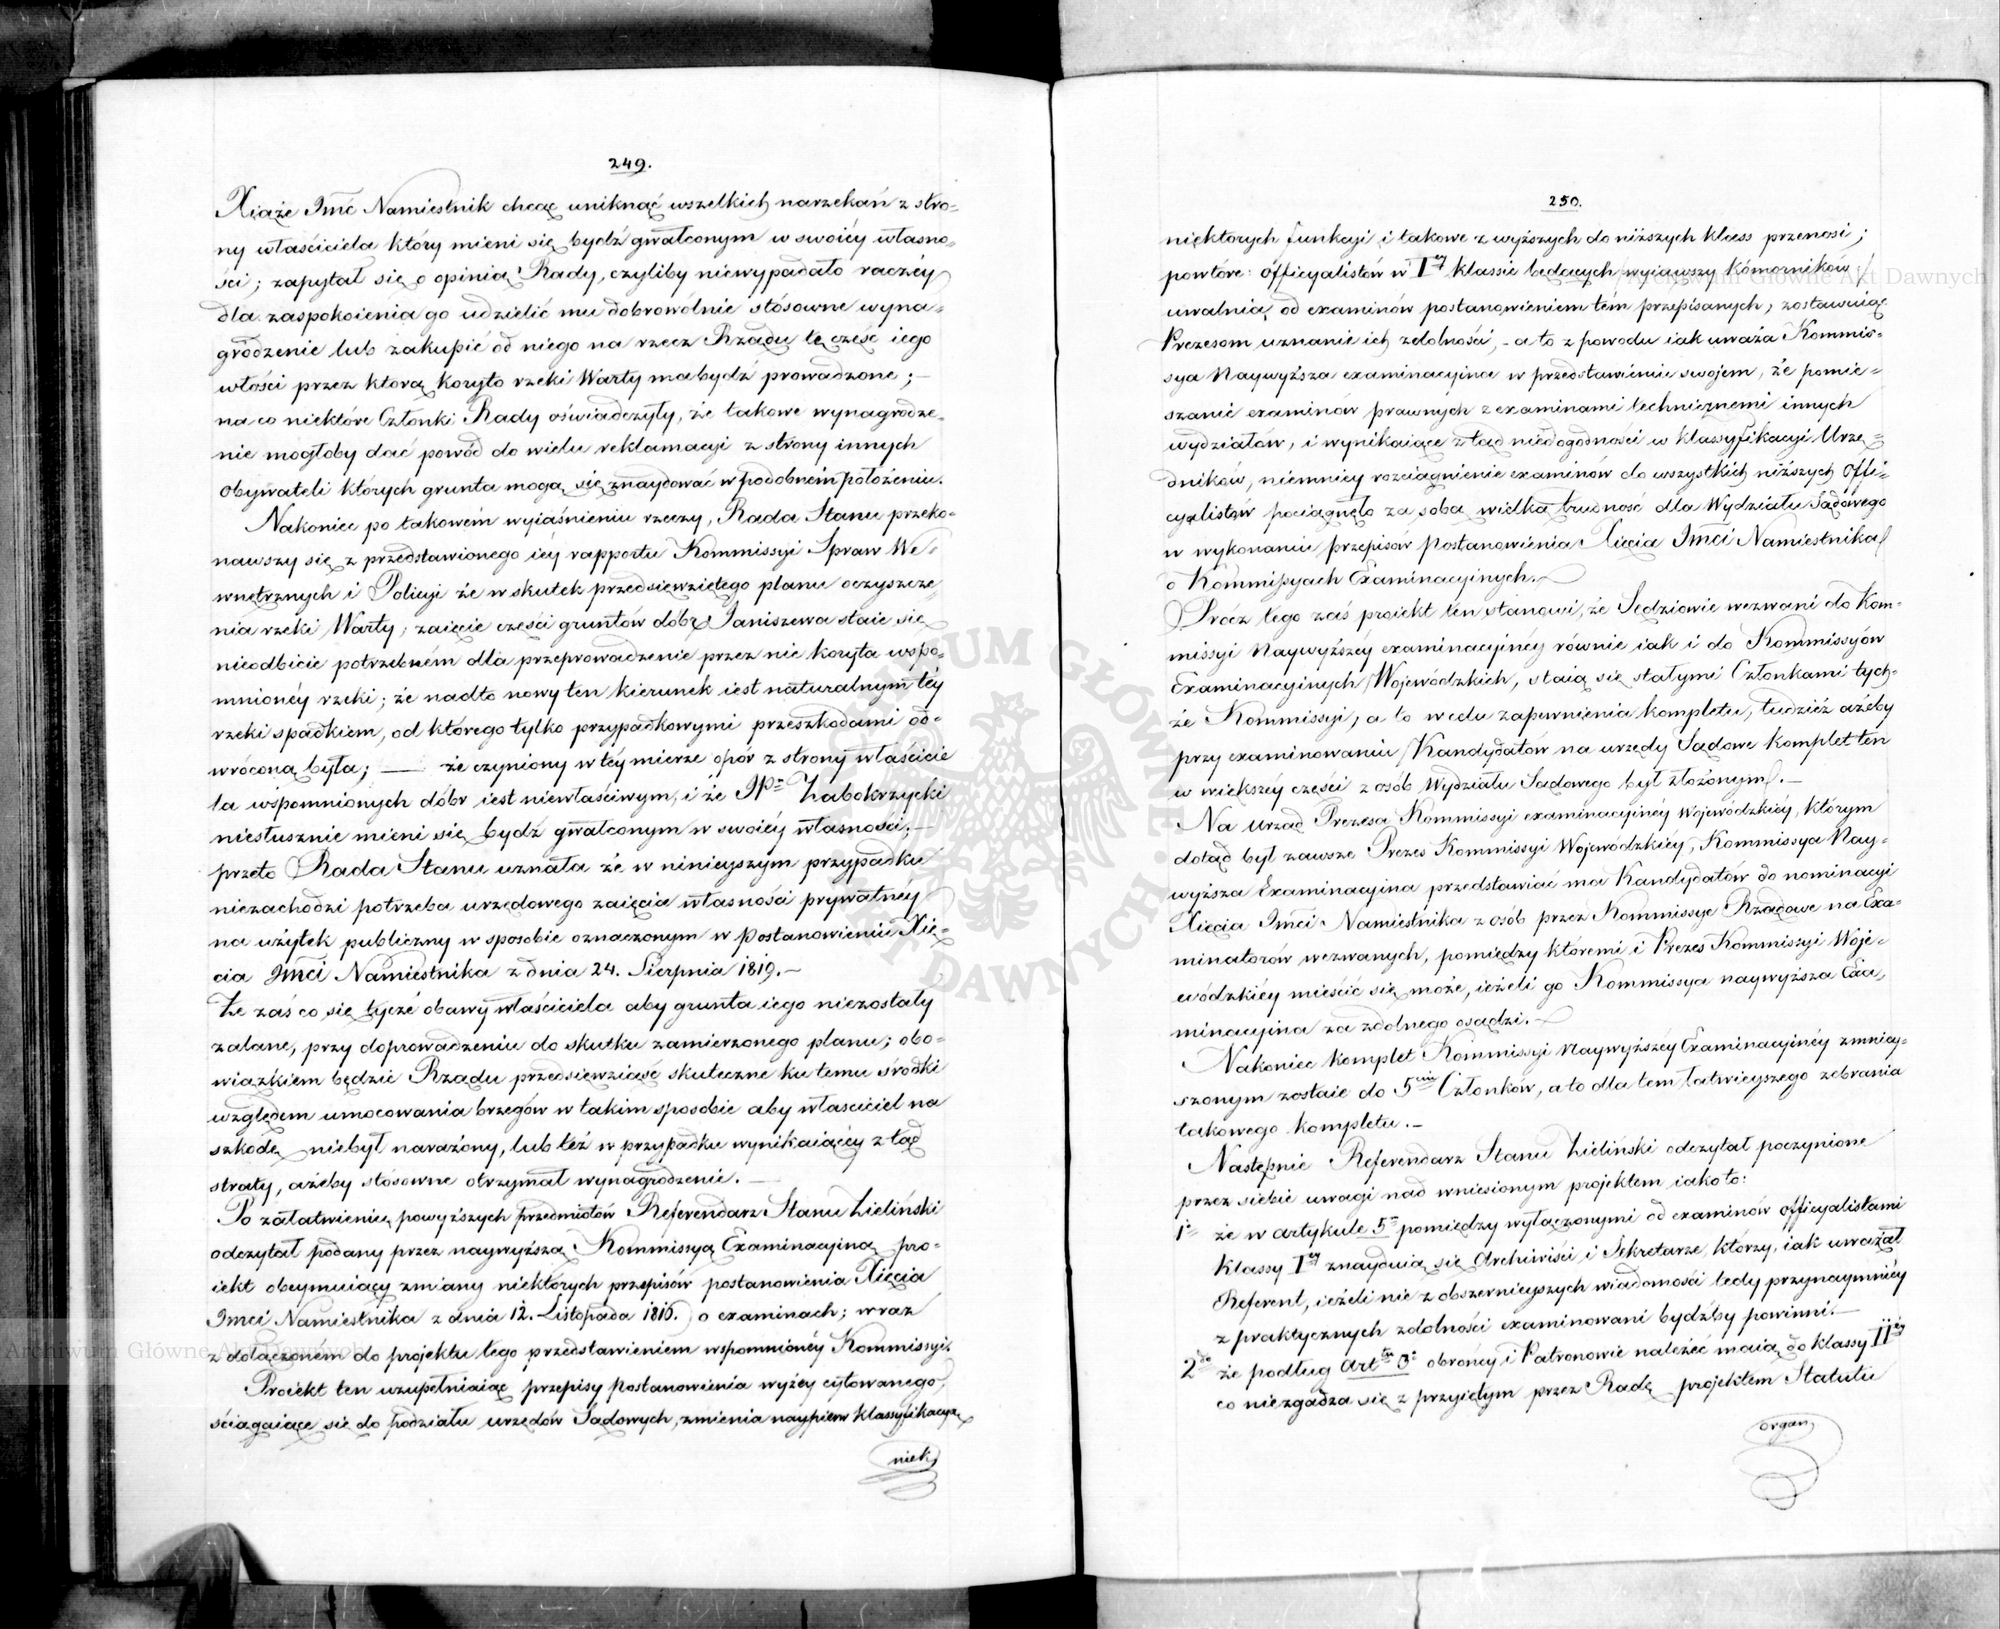 249.
Xiąże Imć Namiestnik chcąc uniknąć wszelkich narzekań z stro-
ny właściciela który mieni się bydź gwałconym w swoiéy własno-
ści; zapytał się o opinią Rady, czyliby niewypadało raczéy
dla zaspokoienia go udzielić mu dobrowolnie stósowne wyna-
grodzenie lub zakupić od niego na rzecz Rządu tę część iego
włości przez którą koryto rzeki Warty ma bydź prowadzone; —
na co niektóre Członki Rady oświadczyły, że takowe wynagrodze-
nie mogłoby dać powód do wielu reklamacyi z strony innych
obywateli których grunta mogą się znaydować w podobném położeniu.
Nakoniec po takowém wyiaśnieniu rzeczy, Rada Stanu przeko-
nawszy się z przedstawionego iéy rapportu Kommissyi Spraw We-
wnętrznych i Policyi że w skutek przedsięwziętego planu oczyszcze-
nia rzeki Warty, zaięcie części gruntów dóbr Janiszewa staie się
nieodbicie potrzebném dla przeprowadzenie przez nie koryta wspo-
mnionéy rzeki; że nadto nowy ten kierunek iest naturalnym téy
rzeki spadkiem, od którego tylko przypadkowymi przeszkodami od-
wróconą była; — że czyniony w téy mierze opór z strony właścicie
la wspomnionych dóbr iest niewłaściwym, i że JPn Zabokrzycki
niesłusznie mieni się bydź gwałconym w swoiéy własności; —
przeto Rada Stanu uznała że w ninieyszym przypadku
niezachodzi potrzeba urzędowego zaięcia własności prywatnéy
na użytek publiczny w sposobie oznaczonym w Postanowieniu Xię-
cia Imci Namiestnika z dnia 24. Sierpnia 1819. —
Że zaś co się tycze obawy właściciela aby grunta iego niezostały
zalane, przy doprowadzeniu do skutku zamierzonego planu; obo-
wiązkiem będzie Rządu przedsięwziąść skuteczne ku temu środki
względem umocowania brzegów w takim sposobie aby właściciel na
szkodę niebył narażony, lub téż w przypadku wynikaiącéy z tąd
straty, ażeby stósowne otrzymał wynagrodzenie. —
Po załatwieniu powyższych przedmiotów Referendarz Stanu Zieliński
odczytał podany przez naywyższą Kommissyą Examinacyiną pro-
iekt obeymuiący zmiany niektórych przepisów postanowienia Xięcia
Imci Namiestnika z dnia 12. Listopada 1816. o examinach; wraz
z dołączoném do projektu tego przedstawieniem wspomnionéy Kommissyi.
Proiekt ten uzupełniaiąc przepisy Postanowienia wyżéy cytowanego,
ściągaiące się do podziału urzędów Sądowych, zmienia naypierw klassyfikacyą
niek
250.
niektorych funkcyi i takowe z wyższych do niższych klass przenosi;
powtóre: officyalistów w Iéy klassie będących /:wyiąwszy kómorników:/
uwalnia od examinów postanowieniem tem przepisanych, zostawuiąc
Prezesom uznanie ich zdolności, — a to z powodu iak uważa Kommis-
sya Naywyższa examinacyina w przedstawieniu swojem, że pomie-
szanie examinów prawnych z examinami technicznemi innych
wydziałów, i wynikaiące z tąd niedogodności w klassyfikacyi Urzę-
dników, niemniéy rozciągnienie examinów do wszystkich niższych Offi-
cyalistów pociągnęło za sobą wielką trudność dla Wydziału Sądowego
w wykonaniu przepisów Postanowienia Xięcia Imci Namiestnika
o Kommissyach Examinacyinych. —
Prócz tego zaś proiekt ten stanowi, że Sędziowie wezwani do Kom-
missyi Naywyższéy examinacyinéy równie iak i do Kommissyów
Examinacyinych Wojewódzkich, staią się stałymi Członkami tych-
że Kommissyi, a to w celu zapewnienia kompletu, tudzież ażeby
przy examinowaniu Kandydatów na urzędy Sądowe komplet ten
w większéy części z osób Wydziału Sądowego był złożonym. —
Na Urząd Prezesa Kommissyi examinacyinéy Wojewódzkiéy, którym
dotąd był zawsze Prezes Kommissyi Wojewódzkiéy, Kommissya Nay-
wyższa Examinacyina przedstawiać ma Kandydatów do nominacyi
Xięcia Imci Namiestnika z osób przez Kommissye Rządowe na Exa-
minatorów wezwanych, pomiędzy któremi i Prezes Kommissyi Woje-
wódzkiéy mieścić się może, ieżeli go Kommissya naywyższa Exa-
minacyina za zdolnego osądzi. —
Nakoniec komplet Kommissyi Naywyższéy Examinacyinéy zmniey-
szonym zostaie do 5ciu Członków, a to dla tem łatwieyszego zebrania
takowego kompletu. —
Następnie Referendarz Stanu Zieliński odczytał poczynione
przez siebie uwagi nad wniesionym projektem iako to:
1o że w artykule 5m pomiędzy wyłączonymi od examinów officyalistami
klassy Iéy znayduią się Archiwiści i Sekretarze, którzy, iak uważał
Referent, ieżeli nie z obszernieyszych wiadomości tedy przynaymniéy
z praktycznych zdolności examinowani bydźby powinni. —
2do że podług Art obrońcy i Patronowie należéć maią do klassy IIéy
co niezgadza się z przyiętym przez Radę projektem Statutu
organ
Archiwum Główne Akt Dawnych